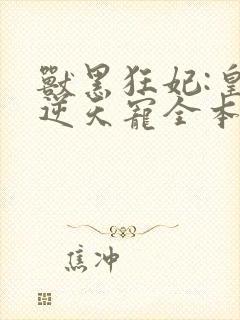 獸黑狂妃:皇
逆天寵全本
焦冲